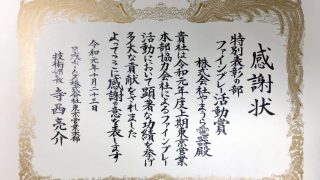 感謝状
特別表彰の部
ファインプレー活動賞
株式会社やまうら電器殿
貴社は令和元年度上期東京営業
本部協力会社によるファインプレー
活動において顕著な功績を挙げ
多大な貢献をされました
よってここに感謝の意を表します
令和元年十月二十三日
株式会社東京営業本部
技術部長 寺西亮介